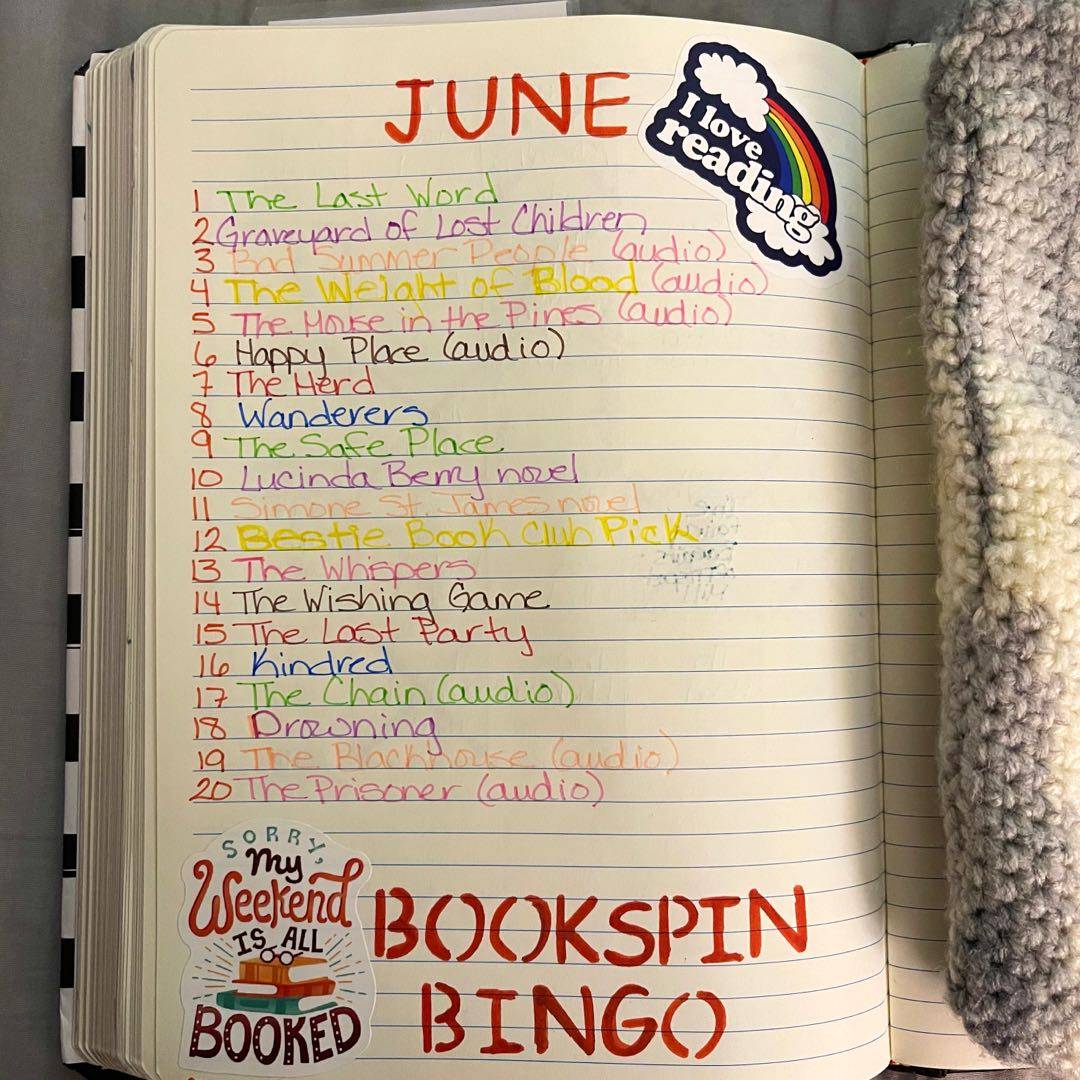 JUNE
I love
reading
1 The Last Word
2 Graveyard of Lost Children
3 Bad Summer People (audio)
4 The Weight of Blood (audio)
5 The House in the Pines (audio)
6 Happy Place (audio)
7 The Herd
8 Wanderers
9 The Safe Place
10 Lucinda Berry novel
11 Simone St. James novel
12 Bestie Book Club Pick
13 The Whispers
14 The Wishing Game
15 The Last Party
16 Kindred
17 The Chain (audio)
18 Drowning
19 The Blackhouse (audio)
20 The Prisoner (audio)
SORRY,
My
Weekend
IS ALL
BOOKED
BOOKSPIN
BINGO